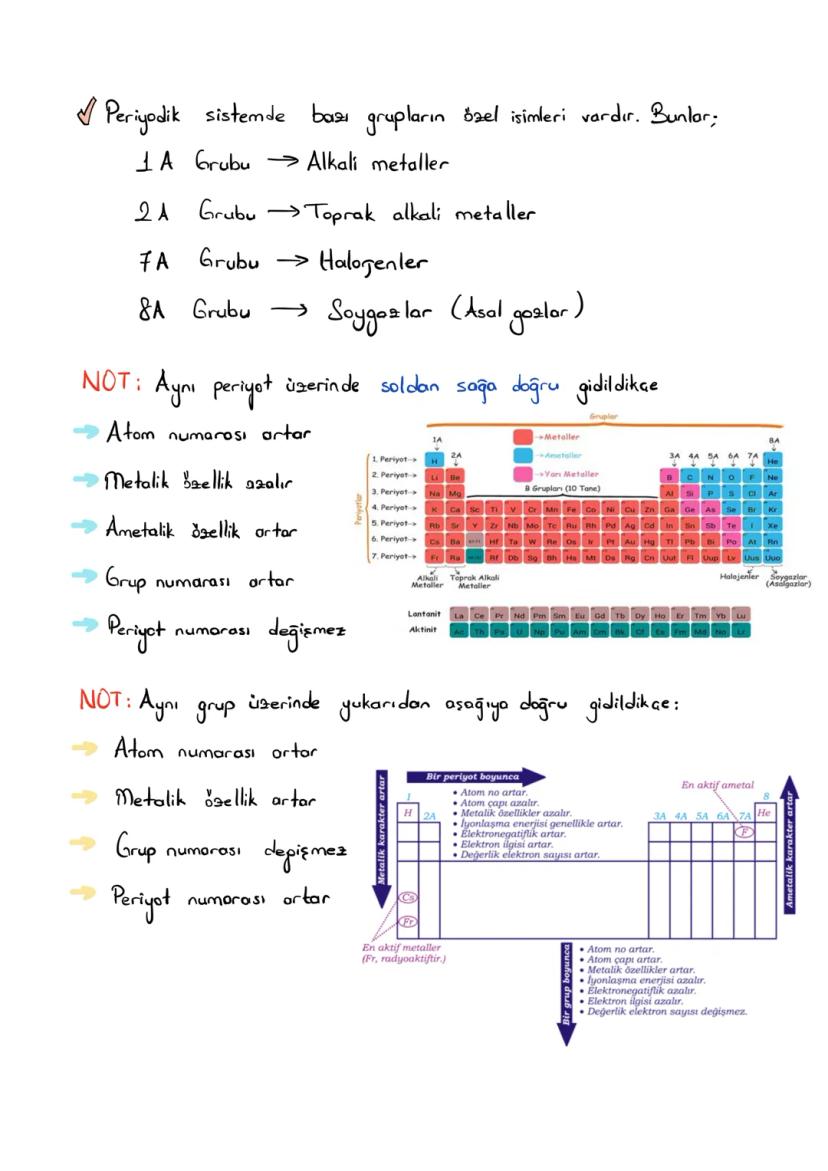 Periyodik sistemde bazı grupların özel isimleri vardır. Bunlar;
1A Grubu → Alkali metaller
2A Grubu → Toprak alkali metaller
7A Grubu → Halojenler
8A Grubu → Soygazlar (Asal gazlar)
NOT: Aynı periyot üzerinde soldan sağa doğru gidildikçe
→ Atom numarası artar
→ Metalik özellik azalır
→ Ametalik özellik artar
→ Grup numarası artar
→ Periyot numarası değişmez
Gruplar
1A 8A
→Metaller
→Ametaller
→Yarı Metaller
2A 3A 4A 5A 6A 7A
B Grupları (10 Tane)
Periyotlar
1. Periyot→ H He
2. Periyot→ Li Be B C N O F Ne
3. Periyot→ Na Mg Al Si P S Cl Ar
4. Periyot→ K Ca Sc Ti V Cr Mn Fe Co Ni Cu Zn Ga Ge As Se Br Kr
5. Periyot→ Rb Sr Y Zr Nb Mo Tc Ru Rh Pd Ag Cd In Sn Sb Te I Xe
6. Periyot→ Cs Ba Hf Ta W Re Os Ir Pt Au Hg Tl Pb Bi Po At Rn
7. Periyot→ Fr Ra Rf Db Sg Bh Hs Mt Ds Rg Cn Uut Fl Uup Lv Uus Uuo
Alkali Metaller
Toprak Alkali Metaller
Halojenler
Soygazlar (Asalgazlar)
Lantanit La Ce Pr Nd Pm Sm Eu Gd Tb Dy Ho Er Tm Yb Lu
Aktinit Ac Th Pa U Np Pu Am Cm Bk Cf Es Fm Md No Lr
NOT: Aynı grup üzerinde yukarıdan aşağıya doğru gidildikçe:
→ Atom numarası artar
→ Metalik özellik artar
→ Grup numarası depişmez
→ Periyot numarası artar
Metalik karakter artar
Bir periyot boyunca
• Atom no artar.
• Atom çapı azalır.
• Metalik özellikler azalır.
• İyonlaşma enerjisi genellikle artar.
• Elektronegatiflik artar.
• Elektron ilgisi artar.
• Değerlik elektron sayısı artar.
En aktif ametal
1 8
H He
2A 3A 4A 5A 6A 7A
F
Cs
Fr
Ametalik karakter artar
En aktif metaller
(Fr, radyoaktiftir.)
Bir grup boyunca
• Atom no artar.
• Atom çapı artar.
• Metalik özellikler artar.
• İyonlaşma enerjisi azalır.
• Elektronegatiflik azalır.
• Elektron ilgisi azalır.
• Değerlik elektron sayısı değişmez.